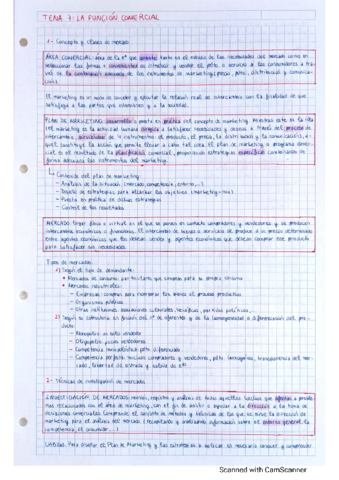 TEMA 7: LA FUNCIÓN COMERCIAL
1- Concepto y clases de mercado
ÁREA COMERCIAL: área de la Eª que se encarga tanto en el estudio de las necesidades del mercado como en
seleccionar las formas de introducir y vender el pdto o servicio a los consumidores a tra-
vés de la combinación adecuada de los instrumentos de marketing (precio, pdto, distribución y comunica-
ción).
El marketing es un modo de concebir y ejecutar la relación real de intercambio con la finalidad de que
satisfaga a las partes que intervienen y a la sociedad.
PLAN DE MARKETING: desarrolla y pone en práctica el concepto de marketing. Mientras que la
el marketing es la actividad humana dirigida a satisfacer necesidades y deseos a través del proceso de
intercambio, de instrumentos el producto, el precio, la distribución y la comunicación,
el cual constituye la acción que permite llevar a cabo tal idea. El plan de marketing o programa comer-
cial es el resultado de la planificación comercial, proponiendo estrategias específicas combinadas de
forma adecuada los instrumentos del marketing.
Contenido del plan de marketing
- Análisis de la situación (mercado, competencia, entorno, ...)
- Diseño de estrategias para alcanzar los objetivos (marketing-mix)
- Puesta en práctica de dichas estrategias
- Control de los resultados
MERCADO: lugar físico o virtual en el que se ponen en contacto compradores y vendedores y se producen
intercambios económicos o financieros. El intercambio de bienes o servicios se produce a un precio determinado
entre agentes económicos que los desean vender y agentes económicos que desean comprar ese producto
para satisfacer sus necesidades.
Tipos de mercados:
1) Según el tipo de demandante:
• Mercados de consumo: particulares que compran para su propio consumo
• Mercados industriales:
- Empresas: compran para incorporar los bienes al proceso productivo
- Organismos públicos
- Otras instituciones: asociaciones culturales, benéficas, partidos políticos, ...
2) Según su estructura en función del nº de oferentes y de la homogeneidad o diferenciación del pro-
ducto:
- Monopolio: un solo vendedor
- Oligopolio: pocos vendedores
- Competencia monopolística: pdto diferenciado
- Competencia perfecta: muchos compradores y vendedores, pdto. homogéneo, transparencia del mer-
cado, libertad de entrada y salida de la Eª
2- Técnicas de investigación de mercados
INVESTIGACIÓN DE MERCADOS: reunión, registro y análisis de todos aquellos hechos que afectan a proble-
mas relacionados con el área de marketing, con el fin de asistir o ayudar a la dirección a la toma de
decisiones comerciales. Comprende el conjunto de métodos y técnicas de las que se sirve la dirección de
marketing para el análisis del mercado (recopilando y analizando información sobre el entorno general, la
competencia, el consumidor, ...)
Para diseñar el Plan de Marketing y las estrategias a aplicar es necesario conocer y comprender
Scanned with CamScanner